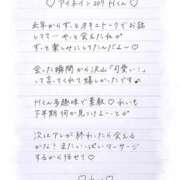 ♡ アイネイン 207 Hくん ♡
去年からずっとオキニトークでお話
してて…やっと会えたねが
すっごい楽しみにしてたんだよー♡
会った瞬間から沢山「可愛い!」
って言ってくれて嬉しかったです
Hくん多趣味で素敵♡ れいも
下半期何か見つけよーっと
次はアレが終わったら会える
かな?またいーっぱいマッサージ
するから任せて♡